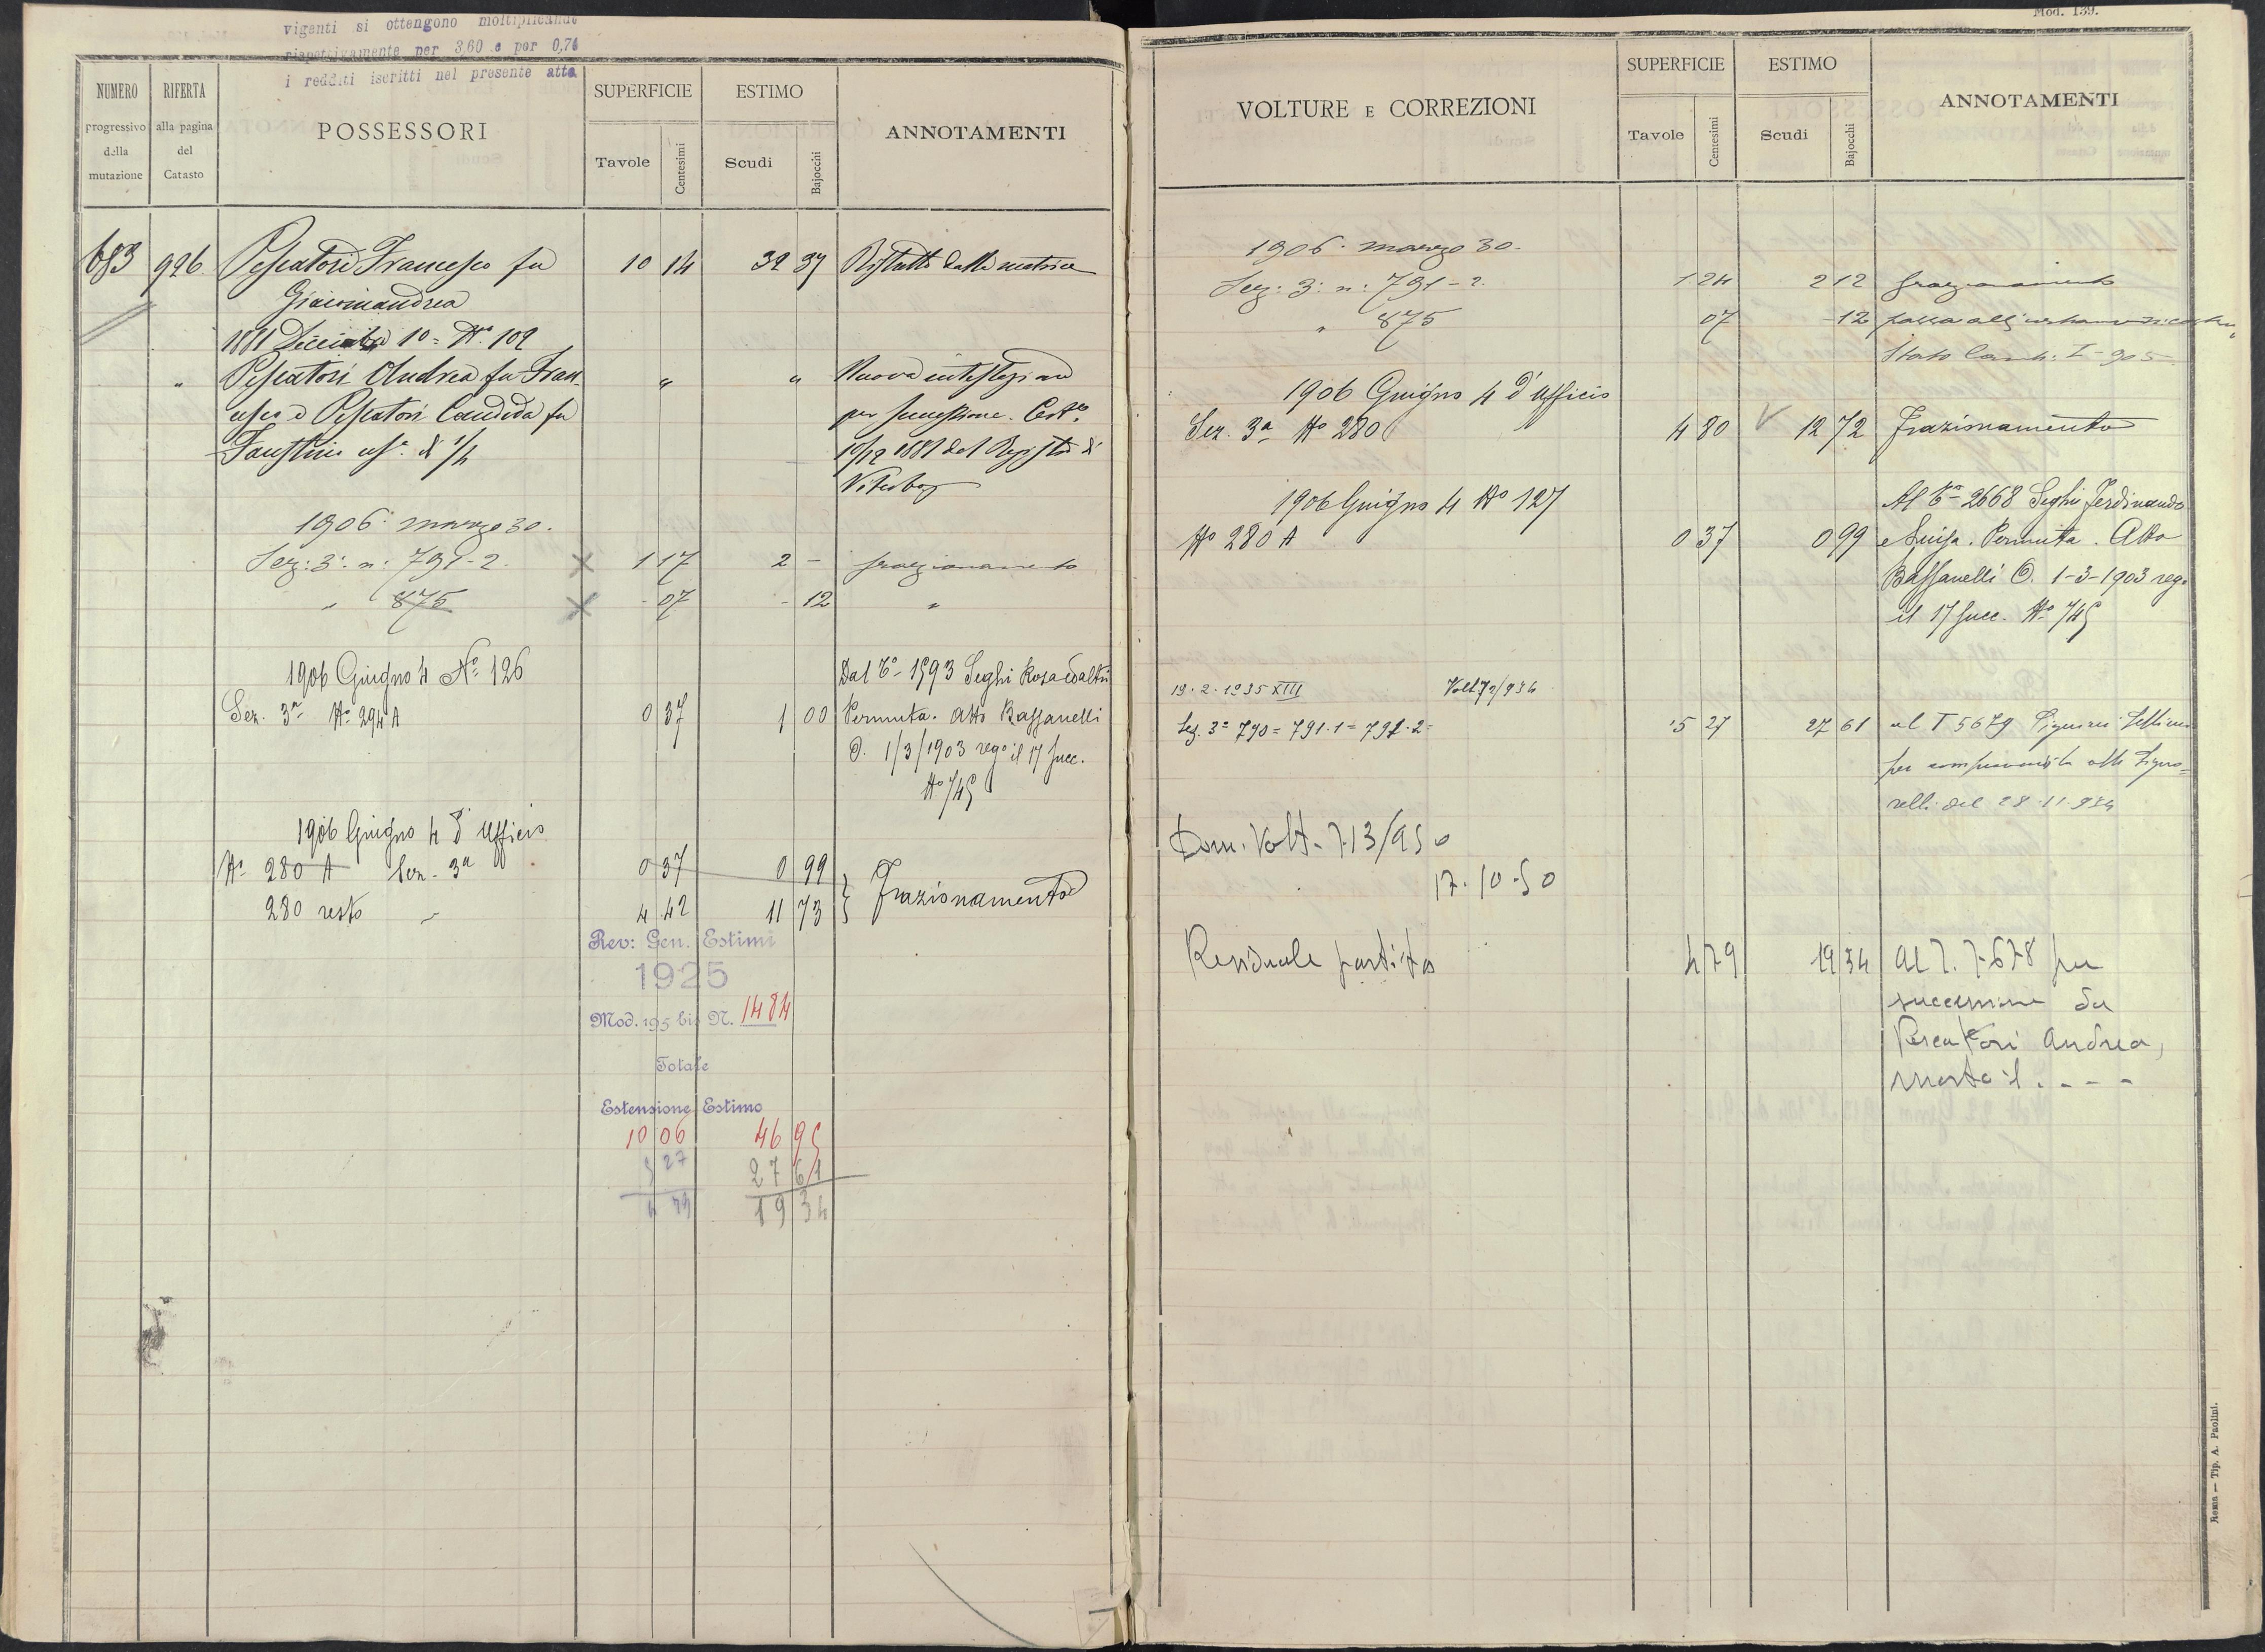 vigenti si ottengono moltiplicando
rispettivamente per 3,60 e per 0,74
i redditi iscritti nel presente atto.
NUMERO progressivo della mutazione
RIFERTA alla pagina del Catasto
POSSESSORI
SUPERFICIE
Tavole Centesimi
ESTIMO
Scudi Bajocchi
ANNOTAMENTI
683 926 Pescatori Francesco fu 10 14 32 37
Giacomandrea
1881 10 = N.º 102
" Pescatori Andrea fu Fran- " " Nuova intestazione
cesco e Pescatori Candida fu per successione. Cert.º
Faustino 10/12 1881 del Registro di
Viterbo
1906. marzo 30.
Sez: 3: n: 791-2. 1 17 2 - frazionamento
" 875 - 07 - 12 "
1906 Giugno 4 Nº 126 Dal Tº 1593 Seghi Rosa ed altri
Sez. 3ª Nº 294 A 0 37 1 00 Permuta. Atto Bassanelli
O. 1/3/1903 regº il 17 succ.
Nº 745
1906 Giugno 4 d'Ufficio
Nº 280 A Sez. 3ª 0 37 0 99
280 resto " 4 42 11 73 Frazionamento
Rev: Gen. Estimi
1925
Mod. 195 bis N. 1484
Totale
Estensione Estimo
10 06 46 95
5 27 27 61
4 79 19 34
Mod. 139.
VOLTURE E CORREZIONI
SUPERFICIE
Tavole Centesimi
ESTIMO
Scudi Bajocchi
ANNOTAMENTI
1906. marzo 30.
Sez: 3: n: 791-2. 1 24 2 12 frazionamento
" 875 07 - 12 passa all'urbano
Stato Camb. I-905
1906 Giugno 4 d'Ufficio
Sez. 3ª Nº 280 4 80 12 72 Frazionamento
1906 Giugno 4 Nº 127 Al Tº 2668 Seghi Ferdinando
Nº 280 A 0 37 0 99 e Luisa. Permuta. Atto
Bassanelli O. 1-3-1903 reg.
il 17 succ. Nº 745
19.2.1935 XIII Volt 72/934
Sez. 3ª 790 = 791.1 = 791.2 = 5 27 27 61 al T 5679
per compravendita atto Signo=
relli del 28.11.934
Dom. Volt. 713/950
17.10.50
Residuale partita 4 79 19 34 Al T. 7678 per
successione da
Pescatori Andrea,
morto il . - - -
Roma — Tip. A. Paolini.